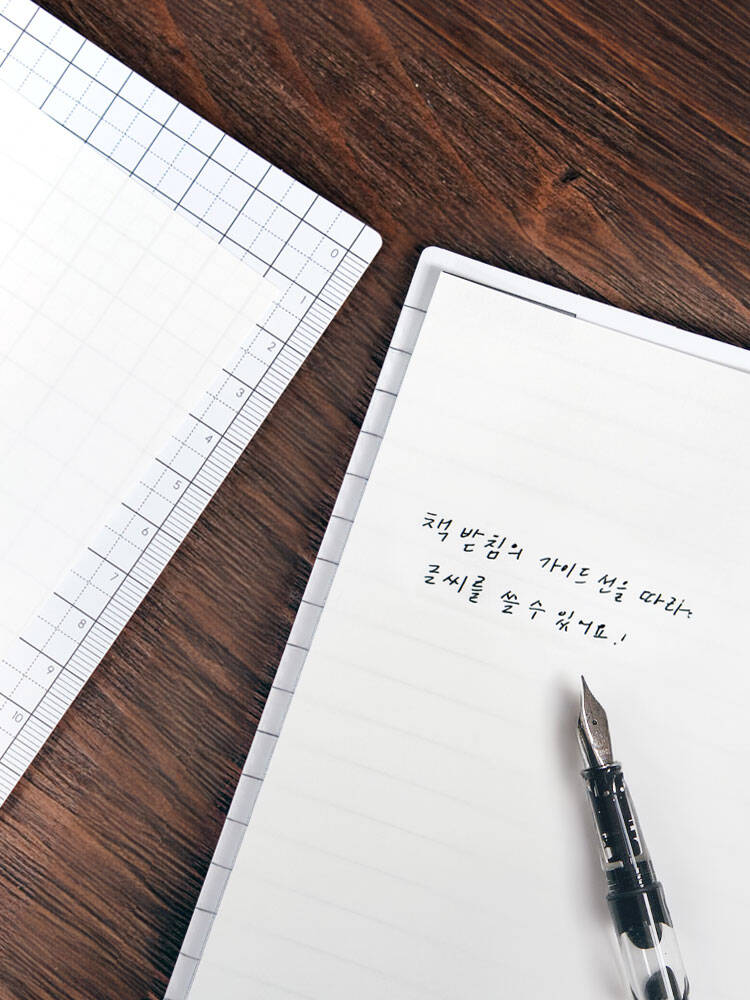 0
1
2
3
4
5
6
7
8
9
10
책받침의 가이드선을 따라
글씨를 쓸 수 있어요!